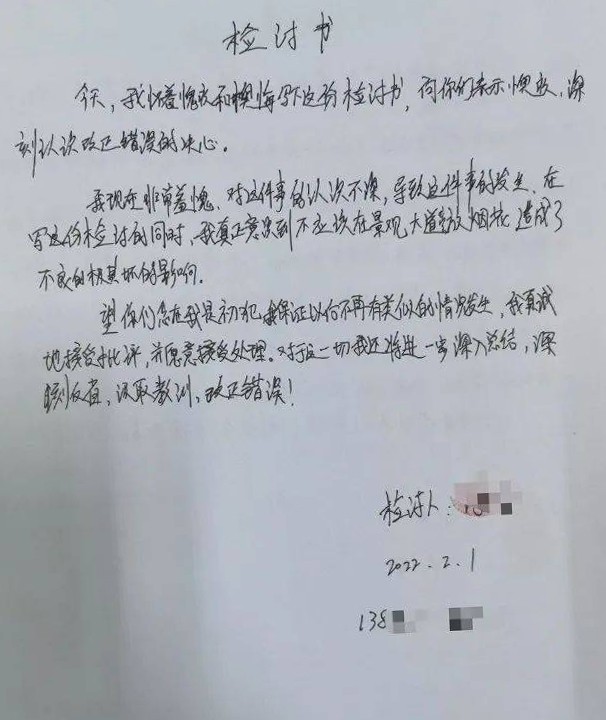 检讨书
今天，我怀着愧疚和懊悔写下这份检讨书，向你们表示懊悔，深
刻认识改正错误的决心。
我现在非常羞愧，对这件事的认识不深，导致这件事的发生，在
写这份检讨的同时，我真正意识到不应该在景观大道燃放烟花，造成了
不良的极其坏的影响。
望你们念在我是初犯，我保证以后不再有类似的情况发生，我真诚
地接受批评，并愿意接受处理。对于这一切我还将进一步深入总结，深
刻反省，汲取教训，改正错误！
检讨人：
2022.2.1
138